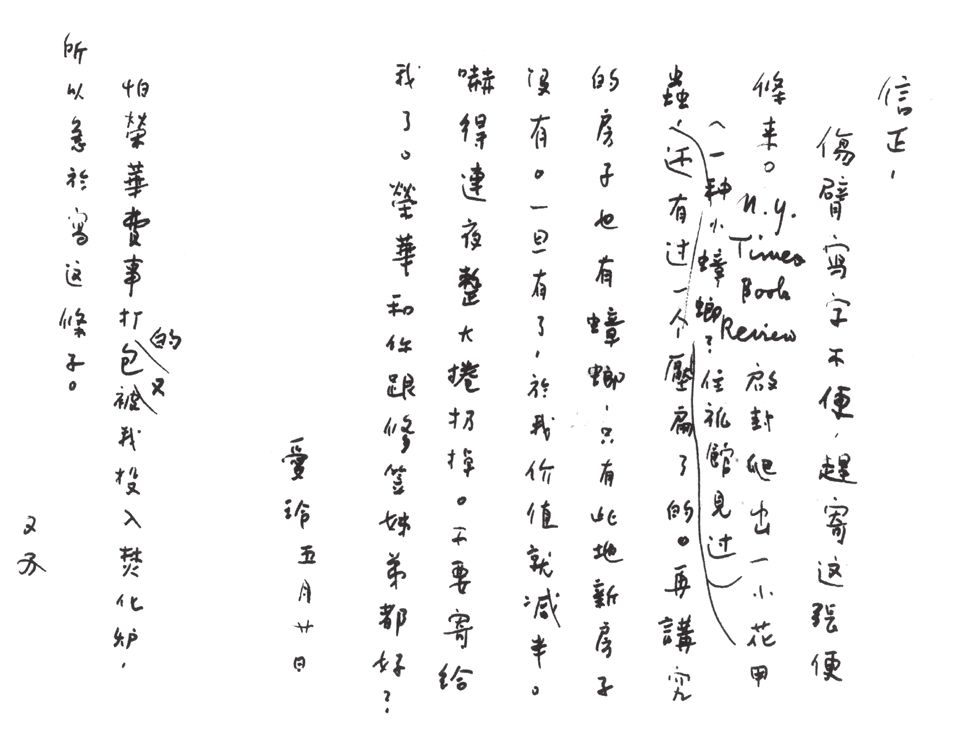 信正,
傷臂寫字不便,趕寄这張便
條来。N.Y. Times Book Review 啟封爬出一小花甲
(一种小蟑螂?住旅館見过)
蟲,还有过一个壓扁了的。再講究
的房子也有蟑螂,只有此地新房子
沒有。一旦有了,於我价值就減半。
嚇得連夜整大捲扔掉。不要寄給
我了。榮華和你跟修姊弟都好?
愛玲 五月廿日
怕榮華費事打包的又被我投入焚化炉,
所以急於寫这條子。
又及